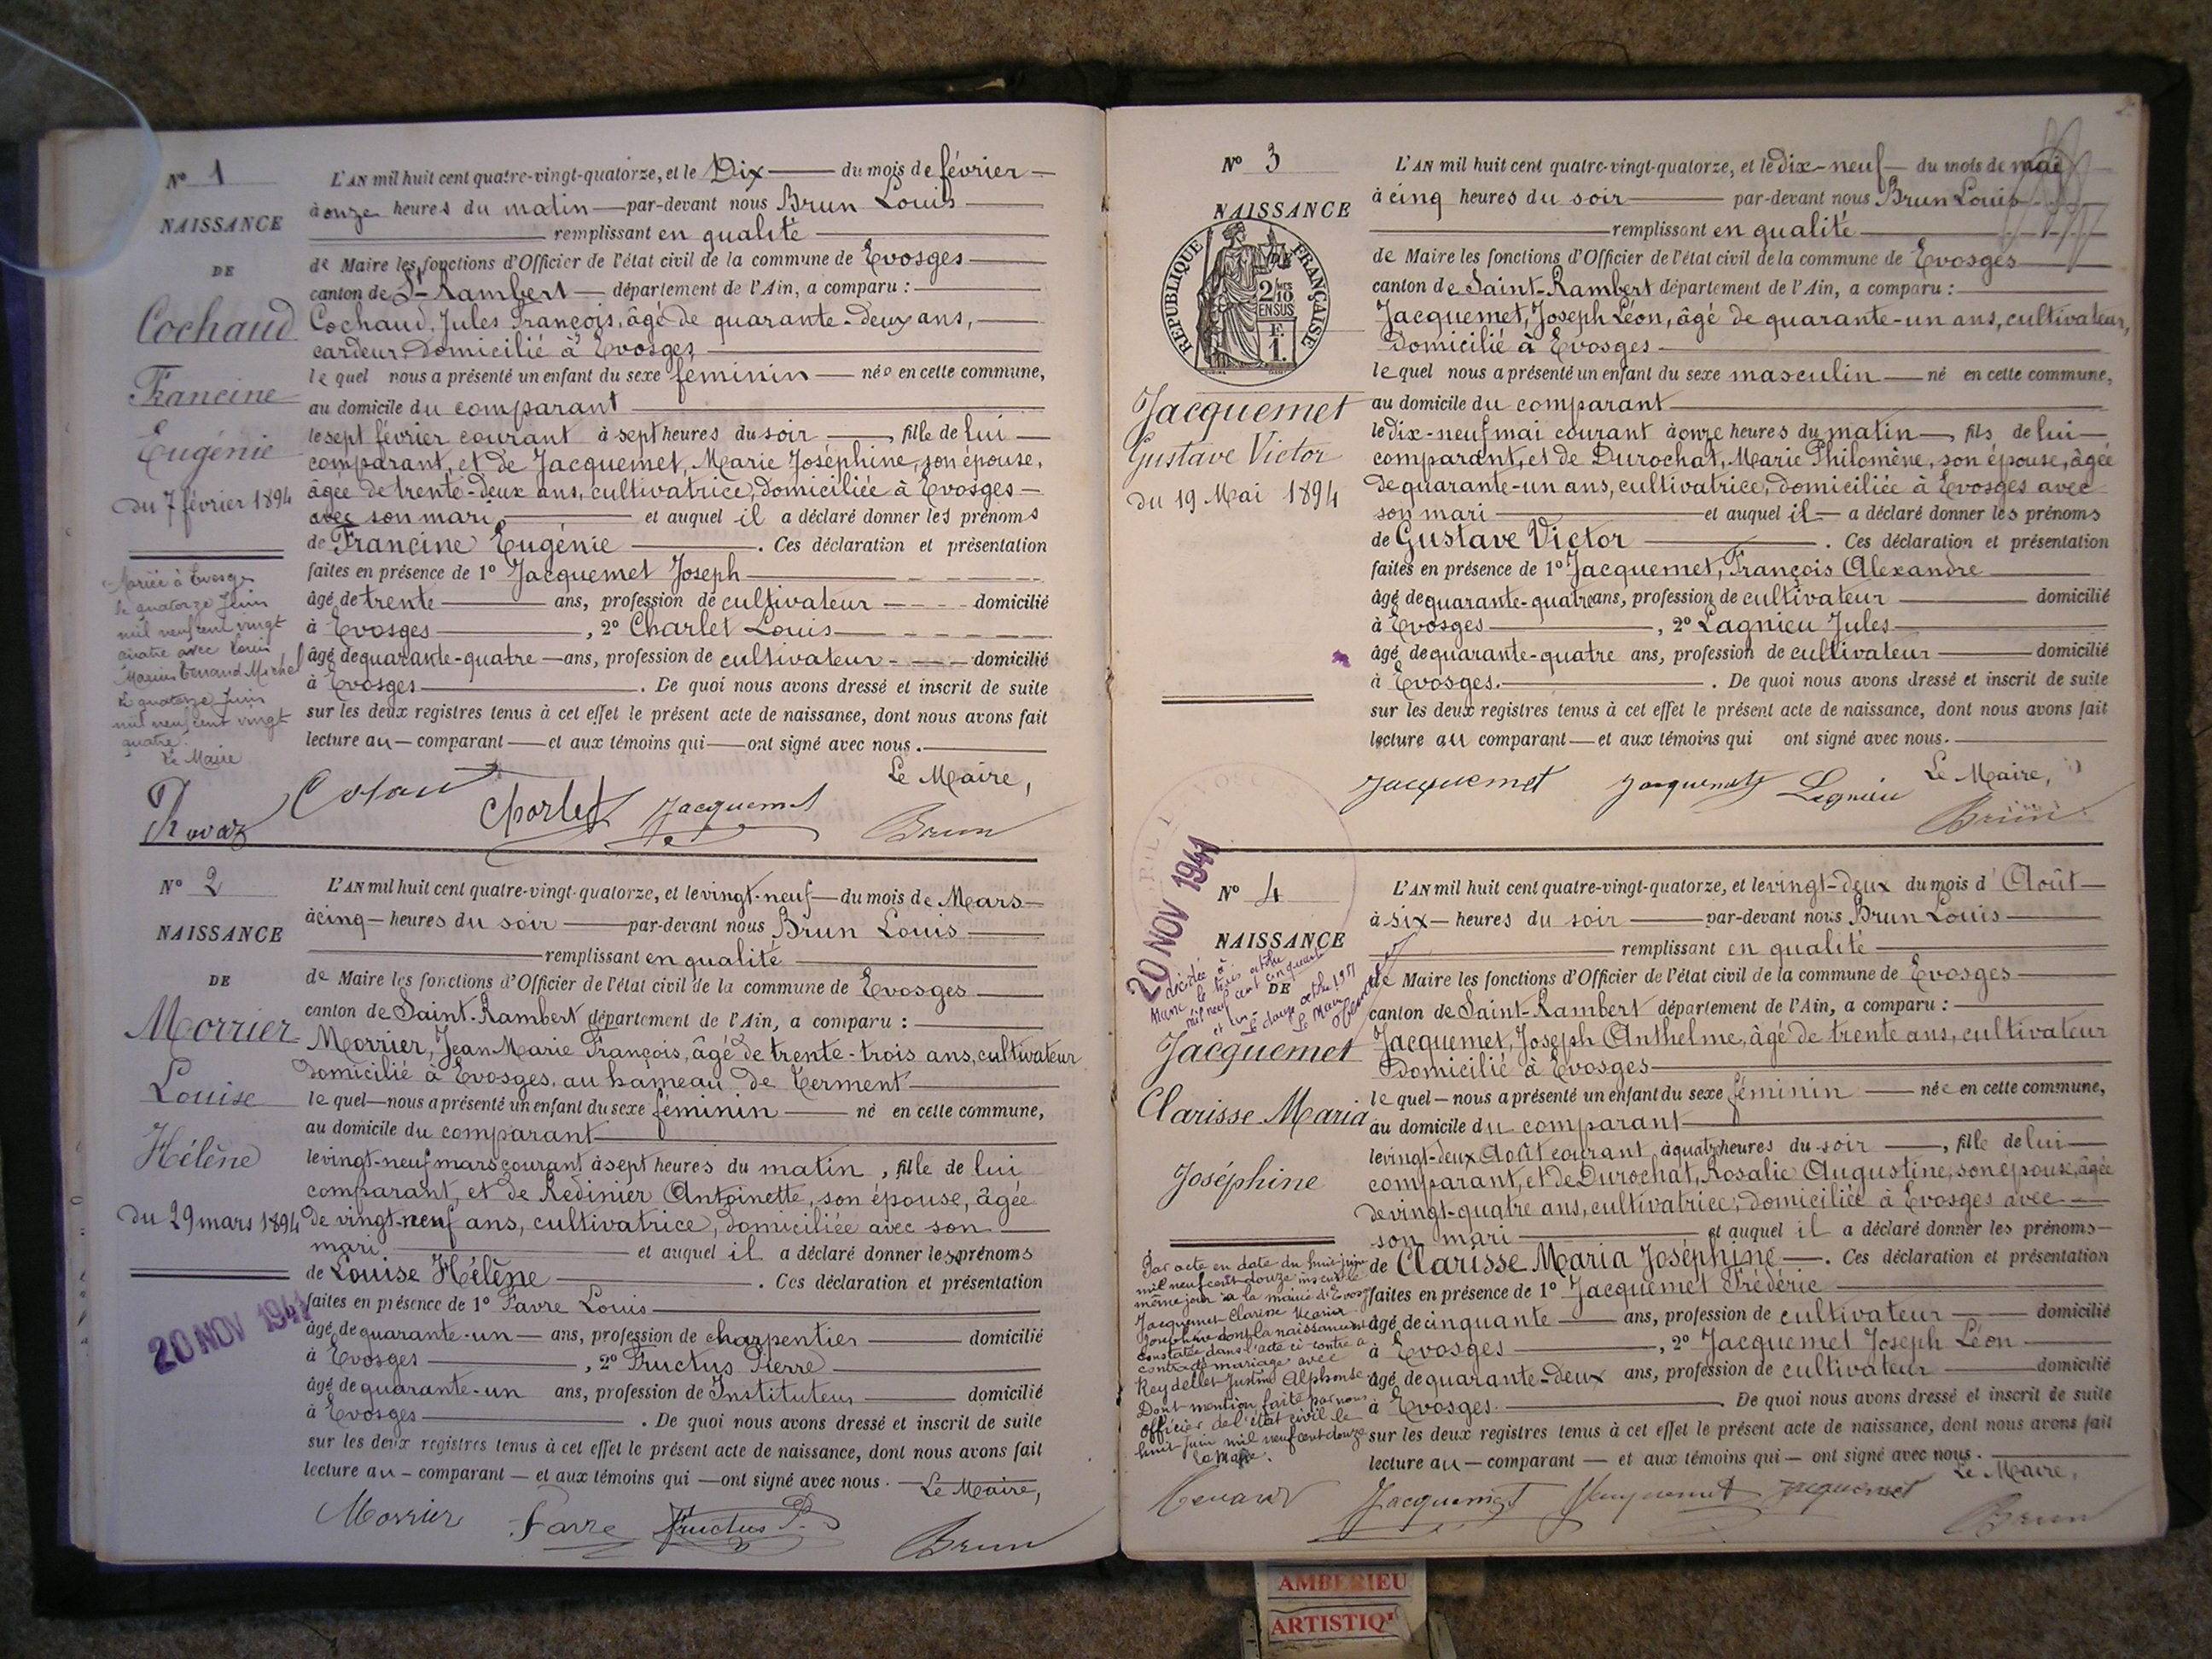 Nº 1
NAISSANCE
DE
Cochaud
Francine
Eugénie
du 7 février 1894
Mariée à Evosges
le quatorze Juin
mil neuf cent vingt
quatre avec Louis
Marius Michel
Le quatorze Juin
mil neuf cent vingt
quatre.
Le Maire
L'AN mil huit cent quatre-vingt-quatorze, et le Dix du mois de février
à onze heures du matin par-devant nous Brun Louis
remplissant en qualité
de Maire les fonctions d'Officier de l'état civil de la commune de Evosges
canton de St-Rambert département de l'Ain, a comparu :
Cochaud, Jules François, âgé de quarante-deux ans,
cardeur domicilié à Evosges
lequel nous a présenté un enfant du sexe féminin née en cette commune,
au domicile du comparant
le sept février courant à sept heures du soir, fille de lui
comparant, et de Jacquemet, Marie Joséphine, son épouse,
âgée de trente-deux ans, cultivatrice, domiciliée à Evosges
avec son mari, et auquel il a déclaré donner les prénoms
de Francine Eugénie. Ces déclaration et présentation
faites en présence de 1º Jacquemet Joseph
âgé de trente ans, profession de cultivateur domicilié
à Evosges, 2º Charlet Louis
âgé de quarante-quatre ans, profession de cultivateur domicilié
à Evosges. De quoi nous avons dressé et inscrit de suite
sur les deux registres tenus à cet effet le présent acte de naissance, dont nous avons fait
lecture au comparant et aux témoins qui ont signé avec nous.
Le Maire,
Charlet Jacquemet Brun
Nº 2
NAISSANCE
DE
Morrier
Louise
Hélène
du 29 mars 1894
20 NOV 1941
L'AN mil huit cent quatre-vingt-quatorze, et le vingt-neuf du mois de Mars
à cinq heures du soir par-devant nous Brun Louis
remplissant en qualité
de Maire les fonctions d'Officier de l'état civil de la commune de Evosges
canton de Saint-Rambert département de l'Ain, a comparu :
Morrier, Jean Marie François, âgé de trente-trois ans, cultivateur
domicilié à Evosges, au hameau de
lequel nous a présenté un enfant du sexe féminin né en cette commune,
au domicile du comparant
le vingt-neuf mars courant à sept heures du matin, fille de lui
comparant, et de Redinier Antoinette, son épouse, âgée
de vingt-neuf ans, cultivatrice, domiciliée avec son
mari. et auquel il a déclaré donner les prénoms
de Louise Hélène. Ces déclaration et présentation
faites en présence de 1º Favre Louis
âgé de quarante-un ans, profession de charpentier domicilié
à Evosges, 2º Fructus Pierre
âgé de quarante-un ans, profession de Instituteur domicilié
à Evosges. De quoi nous avons dressé et inscrit de suite
sur les deux registres tenus à cet effet le présent acte de naissance, dont nous avons fait
lecture au comparant et aux témoins qui ont signé avec nous. Le Maire,
Morrier Favre Fructus P. Brun
Nº 3
NAISSANCE
DE
REPUBLIQUE FRANÇAISE
2/10 EN SUS
F. 1.
Jacquemet
Gustave Victor
du 19 Mai 1894
L'AN mil huit cent quatre-vingt-quatorze, et le dix-neuf du mois de mai
à cinq heures du soir par-devant nous Brun Louis
remplissant en qualité
de Maire les fonctions d'Officier de l'état civil de la commune de Evosges
canton de Saint-Rambert département de l'Ain, a comparu :
Jacquemet, Joseph Léon, âgé de quarante-un ans, cultivateur,
domicilié à Evosges
lequel nous a présenté un enfant du sexe masculin né en cette commune,
au domicile du comparant
le dix-neuf mai courant à onze heures du matin, fils de lui
comparant, et de Durochat, Marie Philomène, son épouse, âgée
de quarante-un ans, cultivatrice, domiciliée à Evosges avec
son mari et auquel il a déclaré donner les prénoms
de Gustave Victor. Ces déclaration et présentation
faites en présence de 1º Jacquemet, François Alexandre
âgé de quarante-quatre ans, profession de cultivateur domicilié
à Evosges, 2º Lagnieu Jules
âgé de quarante-quatre ans, profession de cultivateur domicilié
à Evosges. De quoi nous avons dressé et inscrit de suite
sur les deux registres tenus à cet effet le présent acte de naissance, dont nous avons fait
lecture au comparant et aux témoins qui ont signé avec nous.
Le Maire,
Jacquemet Jacquemet Lagnieu Brun
20 NOV 1941
Nº 4
NAISSANCE
DE
décédée à
le trois octobre
mil neuf cent cinquante
et un
Le douze octobre 1951
Le Maire
Jacquemet
Clarisse Maria
Joséphine
Par acte en date du huit juin
mil neuf cent douze inscrit le
même jour à la mairie d'Evosges
Jacquemet Clarisse Maria
Joséphine dont la naissance est
constatée dans l'acte ci-contre a
contracté mariage avec
Reydellet Justin Alphonse.
Dont mention faite par nous
officier de l'état civil le
huit juin mil neuf cent douze
Le Maire.
L'AN mil huit cent quatre-vingt-quatorze, et le vingt-deux du mois d'Août
à six heures du soir par-devant nous Brun Louis
remplissant en qualité
de Maire les fonctions d'Officier de l'état civil de la commune de Evosges
canton de Saint-Rambert département de l'Ain, a comparu :
Jacquemet, Joseph Anthelme, âgé de trente ans, cultivateur
domicilié à Evosges
lequel nous a présenté un enfant du sexe féminin née en cette commune,
au domicile du comparant
le vingt-deux Août courant à quatre heures du soir, fille de lui
comparant, et de Durochat, Rosalie Augustine, son épouse, âgée
de vingt-quatre ans, cultivatrice, domiciliée à Evosges avec
son mari et auquel il a déclaré donner les prénoms
de Clarisse Maria Joséphine. Ces déclaration et présentation
faites en présence de 1º Jacquemet Frédéric
âgé de cinquante ans, profession de cultivateur domicilié
à Evosges, 2º Jacquemet Joseph Léon
âgé de quarante-deux ans, profession de cultivateur domicilié
à Evosges. De quoi nous avons dressé et inscrit de suite
sur les deux registres tenus à cet effet le présent acte de naissance, dont nous avons fait
lecture au comparant et aux témoins qui ont signé avec nous.
Le Maire,
Jacquemet Jacquemet Jacquemet Brun
AMBERIEU
ARTISTIQ